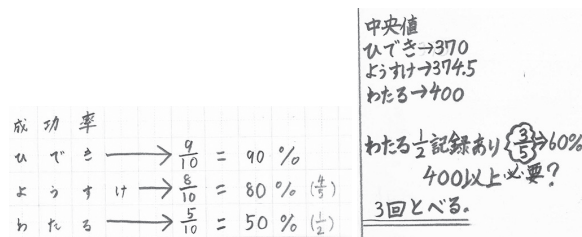 成功率
ひでき→9/10=90%
ようすけ→8/10=80%(4/5)
わたる→5/10=50%(1/2)
中央値
ひでき→370
ようすけ→374.5
わたる→400
わたる1/2記録あり 3/5→60%
400以上必要?
3回とべる。